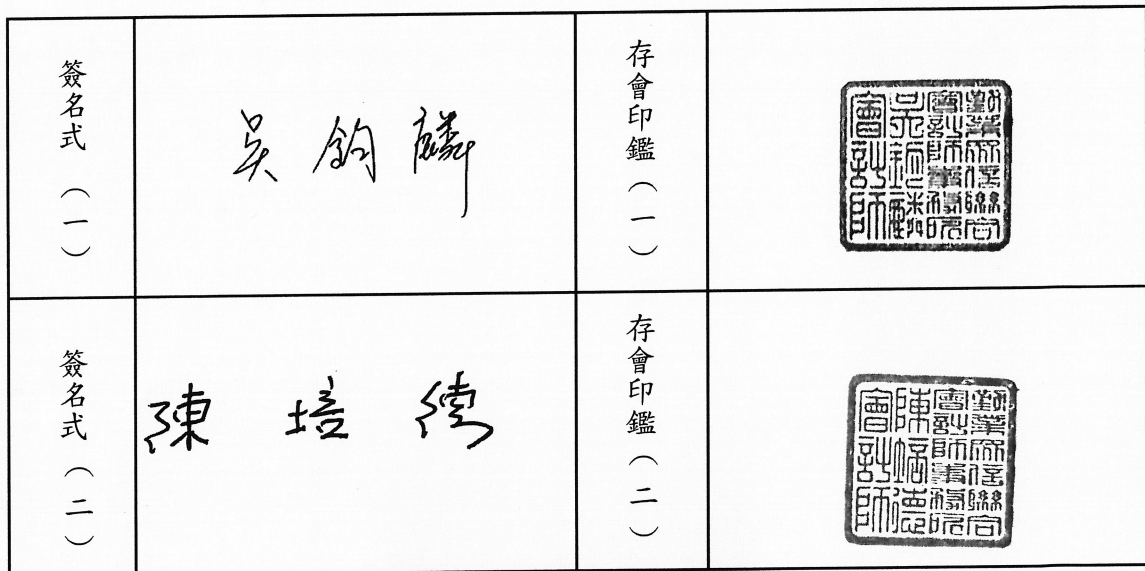 簽名式（一）
吳鈞麟
存會印鑑（一）
勤業眾信聯合
會計師事務所
吳鈞麟
會計師
簽名式（二）
陳培德
存會印鑑（二）
勤業眾信聯合
會計師事務所
陳培德
會計師